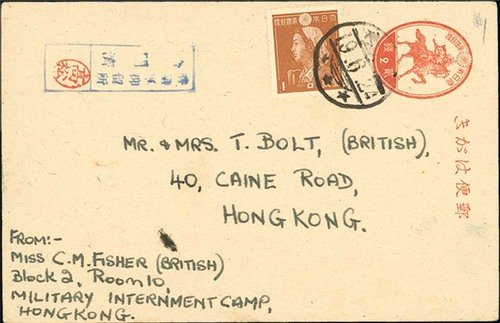 大日本帝國郵便
大日本帝國郵便
貳銭
19.6.
きがは便郵
MR. & MRS. T. BOLT, (BRITISH),
40, CAINE ROAD,
HONGKONG.
FROM:-
MISS C.M. FISHER (BRITISH)
Block 2, Room 10,
MILITARY INTERNMENT CAMP,
HONGKONG.